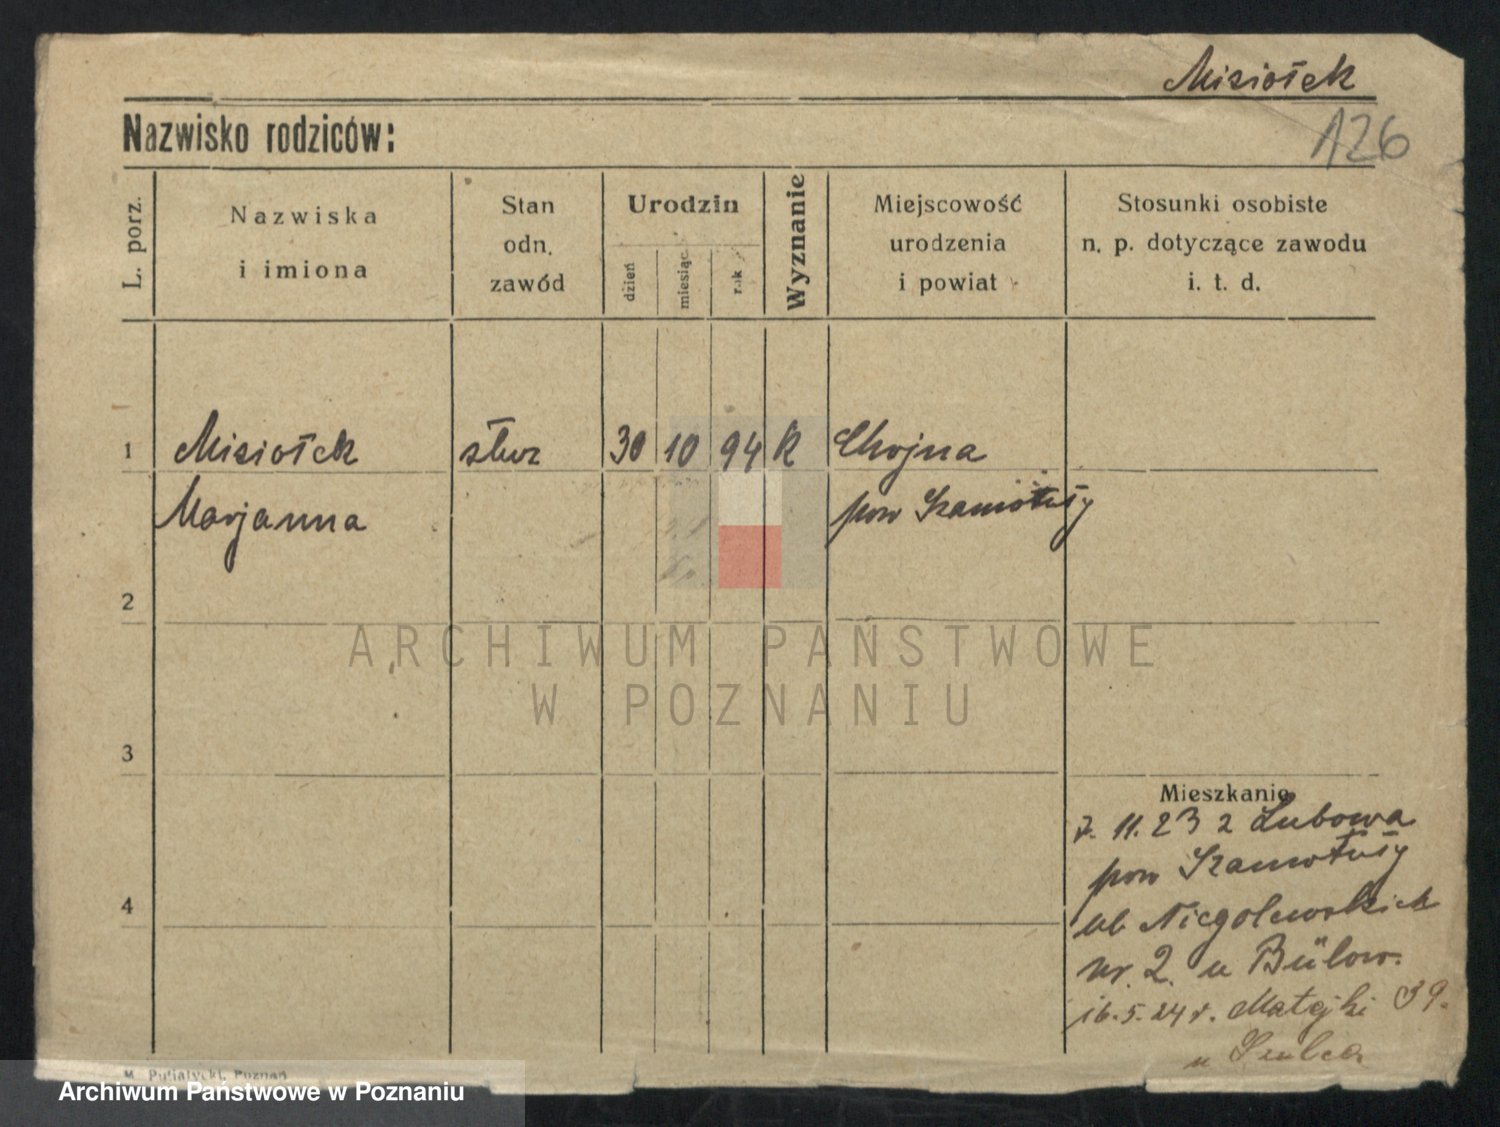 Misiołek
126
Nazwisko rodziców:
L. porz.
Nazwiska
i imiona
Stan
odn.
zawód
Urodzin
dzień
miesiąc
rok
Wyznanie
Miejscowość
urodzenia
i powiat
Stosunki osobiste
n. p. dotyczące zawodu
i. t. d.
1 Misiołek służ 30 10 94 k Chojna
Marjanna pow Szamotuły
2
ARCHIWUM PAŃSTWOWE
W POZNANIU
3
Mieszkanie
7. 11. 23 z Lubowa
pow Szamotuły
ul. Niegolewskich
nr. 2. u Bülow.
16. 5. 24 r. Matejki 39.
u Szulca
4
Archiwum Państwowe w Poznaniu